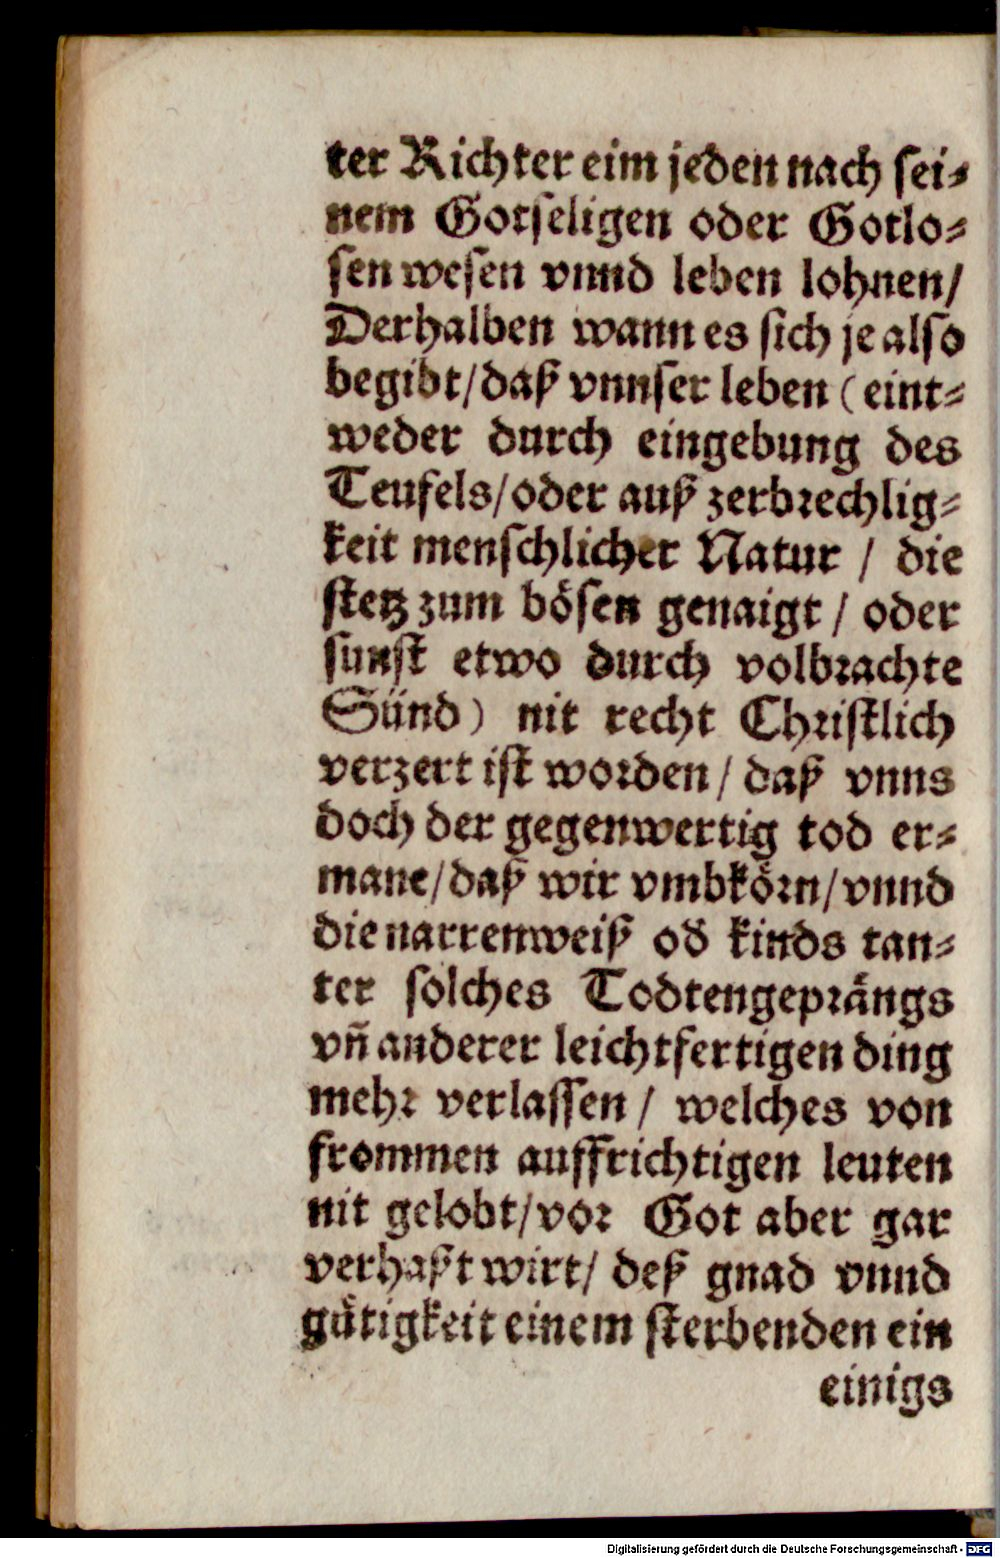 ter Richter eim jeden nach sei⸗
nem Gotseligen oder Gotlo⸗
sen wesen vnnd leben lohnen/
Derhalben wann es sich je also
begibt/daß vnnser leben (eint⸗
weder durch eingebung des
Teufels/oder auß zerbrechlig⸗
keit menschlicher Natur / die
stetz zum bösen genaigt / oder
sunst etwo durch volbrachte
Sünd) nit recht Christlich
verzert ist worden / daß vnns
doch der gegenwertig tod er⸗
mane/daß wir vmbkörn/vnnd
die narrenweiß od̄ kinds tan⸗
ter solches Todtengeprängs
vn̄ anderer leichtfertigen ding
mehr verlassen / welches von
frommen auffrichtigen leuten
nit gelobt/vor Got aber gar
verhaßt wirt/ deß gnad vnnd
gütigkeit einem sterbenden ein
einigs
Digitalisierung gefördert durch die Deutsche Forschungsgemeinschaft - DFG